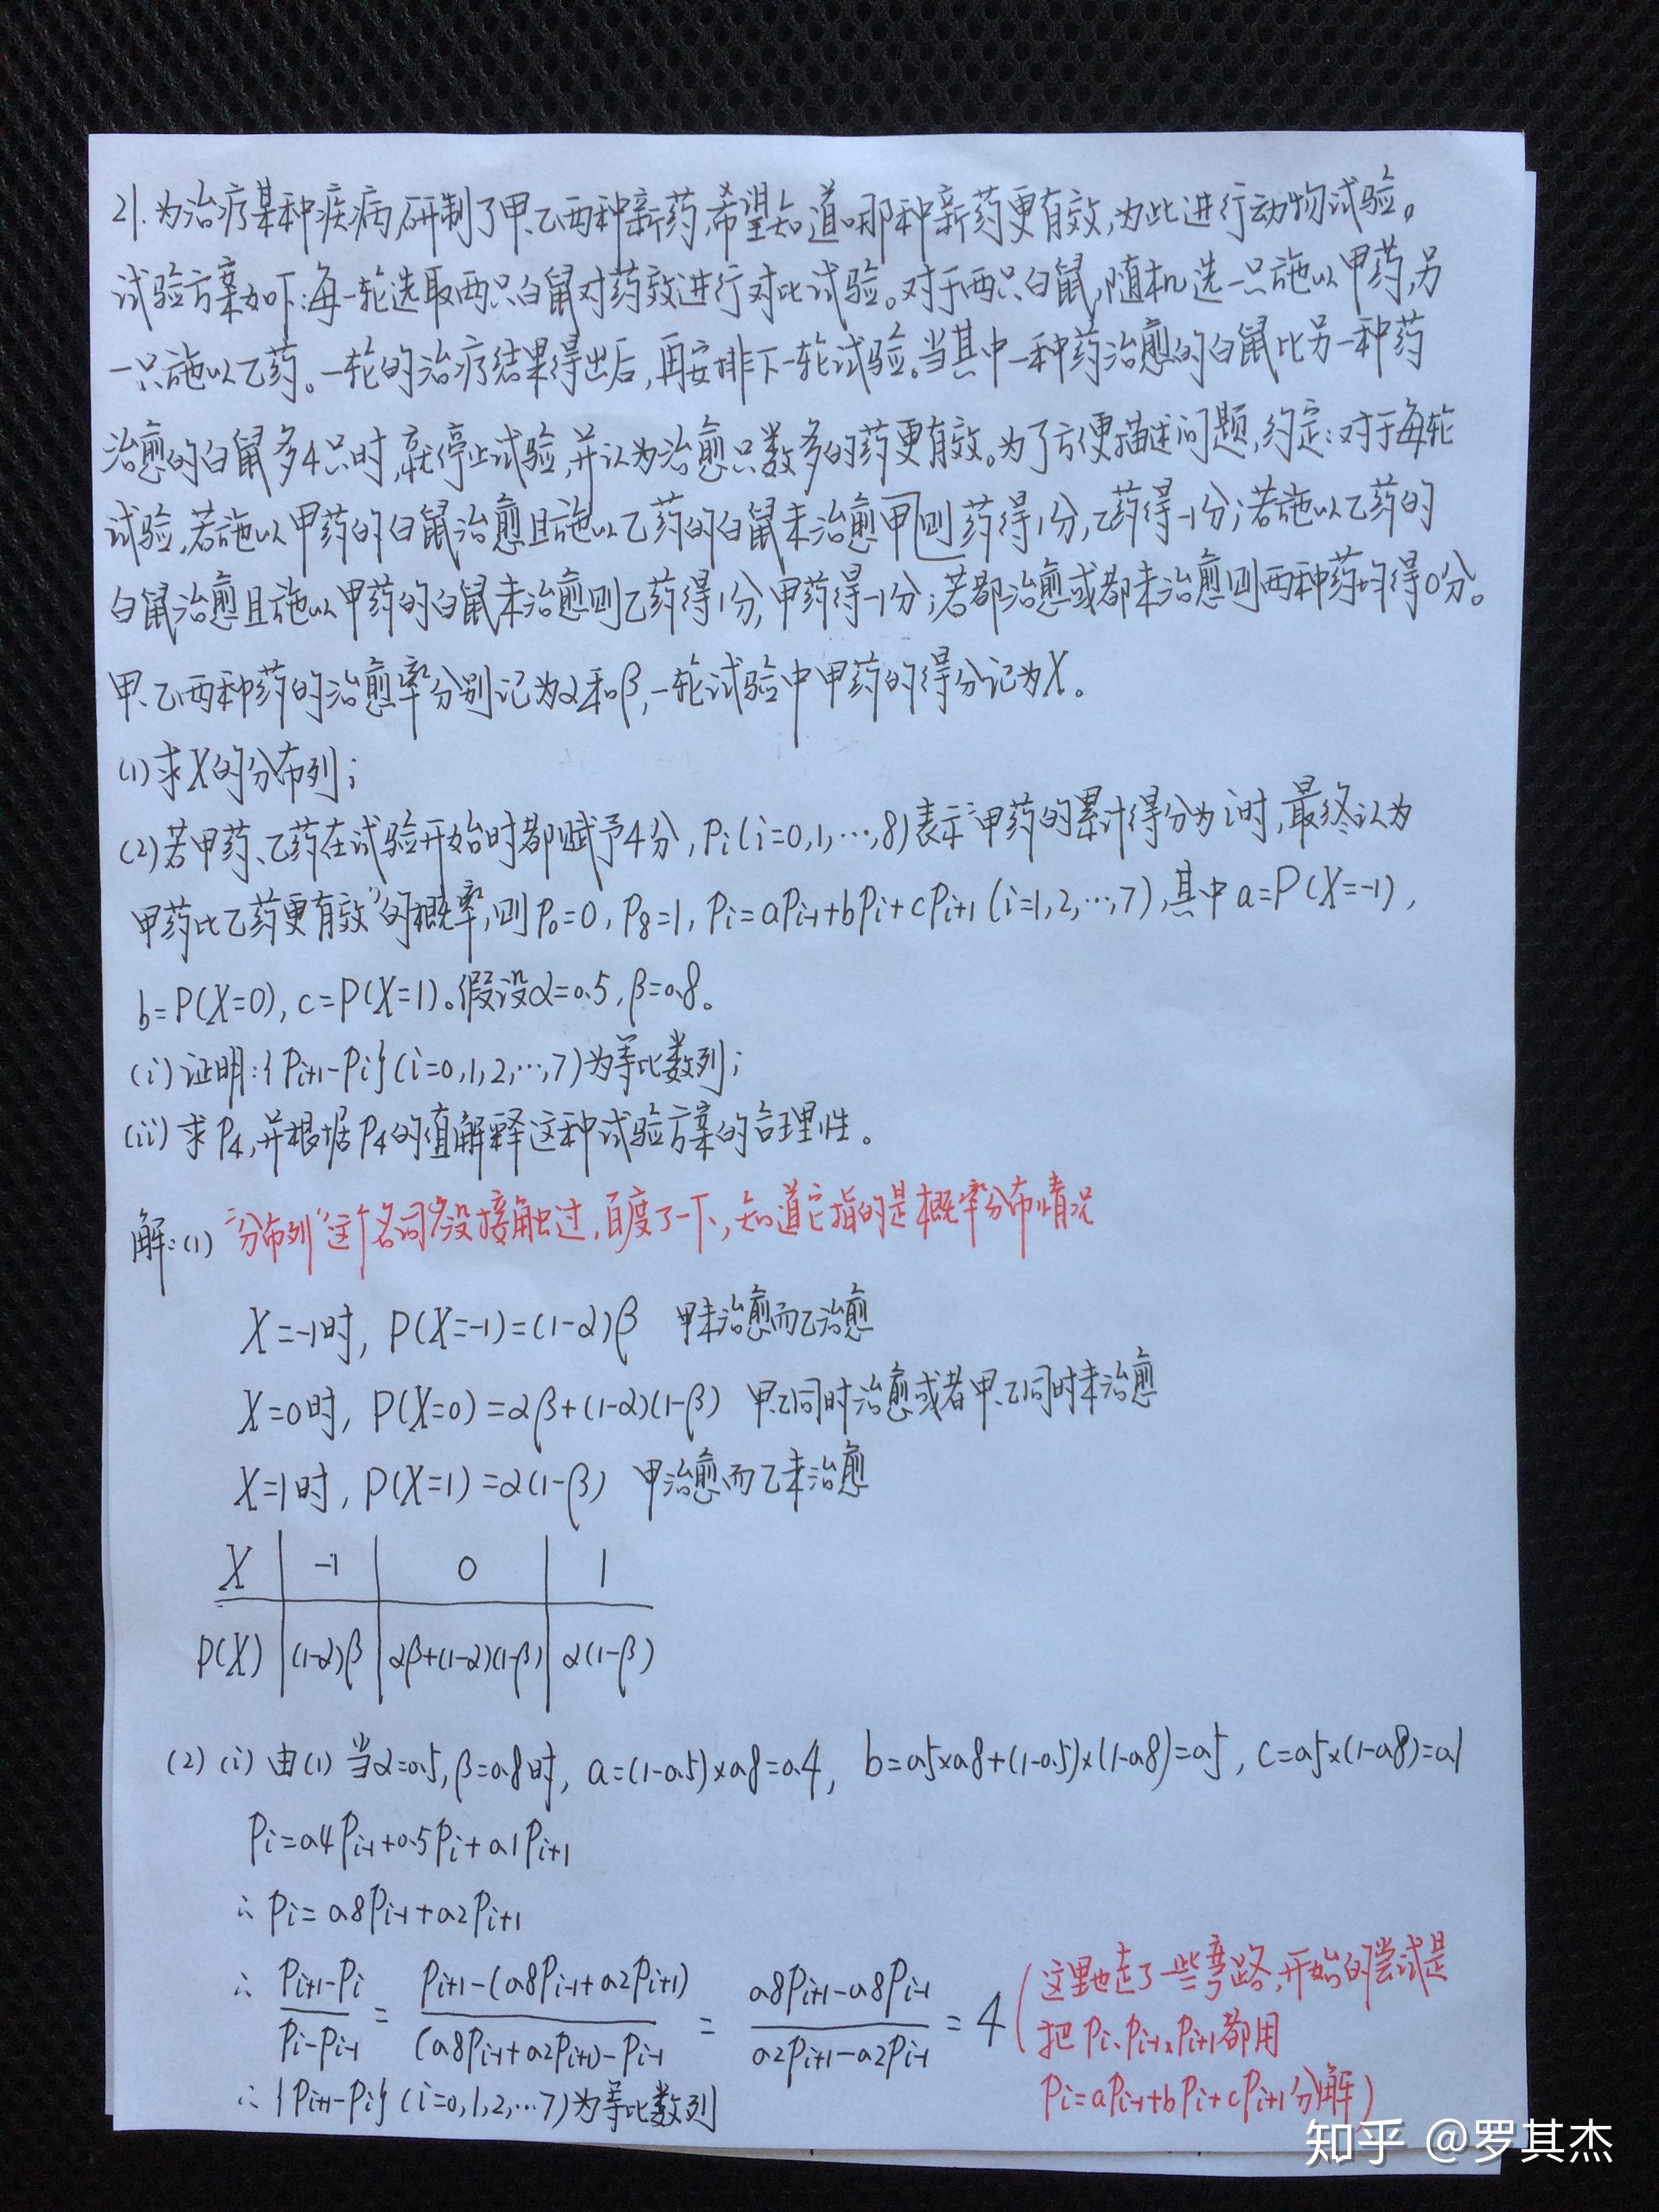 21.为治疗某种疾病,研制了甲、乙两种新药,希望知道哪种新药更有效,为此进行动物试验。
试验方案如下:每一轮选取两只白鼠对药效进行对比试验。对于两只白鼠,随机选一只施以甲药,另
一只施以乙药。一轮的治疗结果得出后,再安排下一轮试验。当其中一种药治愈的白鼠比另一种药
治愈的白鼠多4只时,就停止试验,并认为治愈只数多的药更有效。为了方便描述问题,约定:对于每轮
试验,若施以甲药的白鼠治愈且施以乙药的白鼠未治愈甲则药得1分,乙药得-1分;若施以乙药的
白鼠治愈且施以甲药的白鼠未治愈则乙药得1分,甲药得-1分;若都治愈或都未治愈则两种药均得0分。
甲、乙两种药的治愈率分别记为α和β,一轮试验中甲药的得分记为X。
(1)求X的分布列;
(2)若甲药、乙药在试验开始时都赋予4分,Pi(i=0,1,…,8)表示“甲药的累计得分为i时,最终认为
甲药比乙药更有效”的概率,则P0=0,P8=1,Pi=aPi-1+bPi+cPi+1(i=1,2,…,7),其中a=P(X=-1),
b=P(X=0),c=P(X=1)。假设α=0.5,β=0.8。
(i)证明:{Pi+1-Pi}(i=0,1,2,…,7)为等比数列;
(ii)求P4,并根据P4的值解释这种试验方案的合理性。
解:(1) “分布列”这个名词没接触过,百度了一下,知道它指的是概率分布情况
X=-1时,P(X=-1)=(1-α)β 甲未治愈而乙治愈
X=0时,P(X=0)=αβ+(1-α)(1-β) 甲、乙同时治愈或者甲、乙同时未治愈
X=1时,P(X=1)=α(1-β) 甲治愈而乙未治愈
X -1 0 1
P(X) (1-α)β αβ+(1-α)(1-β) α(1-β)
(2)(i)由(1)当α=0.5,β=0.8时,a=(1-0.5)×0.8=0.4, b=0.5×0.8+(1-0.5)×(1-0.8)=0.5,c=0.5×(1-0.8)=0.1
Pi=0.4Pi-1+0.5Pi+0.1Pi+1
∴Pi=0.8Pi-1+0.2Pi+1
∴ (Pi+1-Pi)/(Pi-Pi-1) = (Pi+1-(0.8Pi-1+0.2Pi+1))/((0.8Pi-1+0.2Pi+1)-Pi-1) = (0.8Pi+1-0.8Pi-1)/(0.2Pi+1-0.2Pi-1) = 4
(这里也走了一些弯路,开始的尝试是
把Pi、Pi-1、Pi+1都用
Pi=aPi-1+bPi+cPi+1分解)
∴{Pi+1-Pi}(i=0,1,2,…7)为等比数列
知乎 @罗其杰